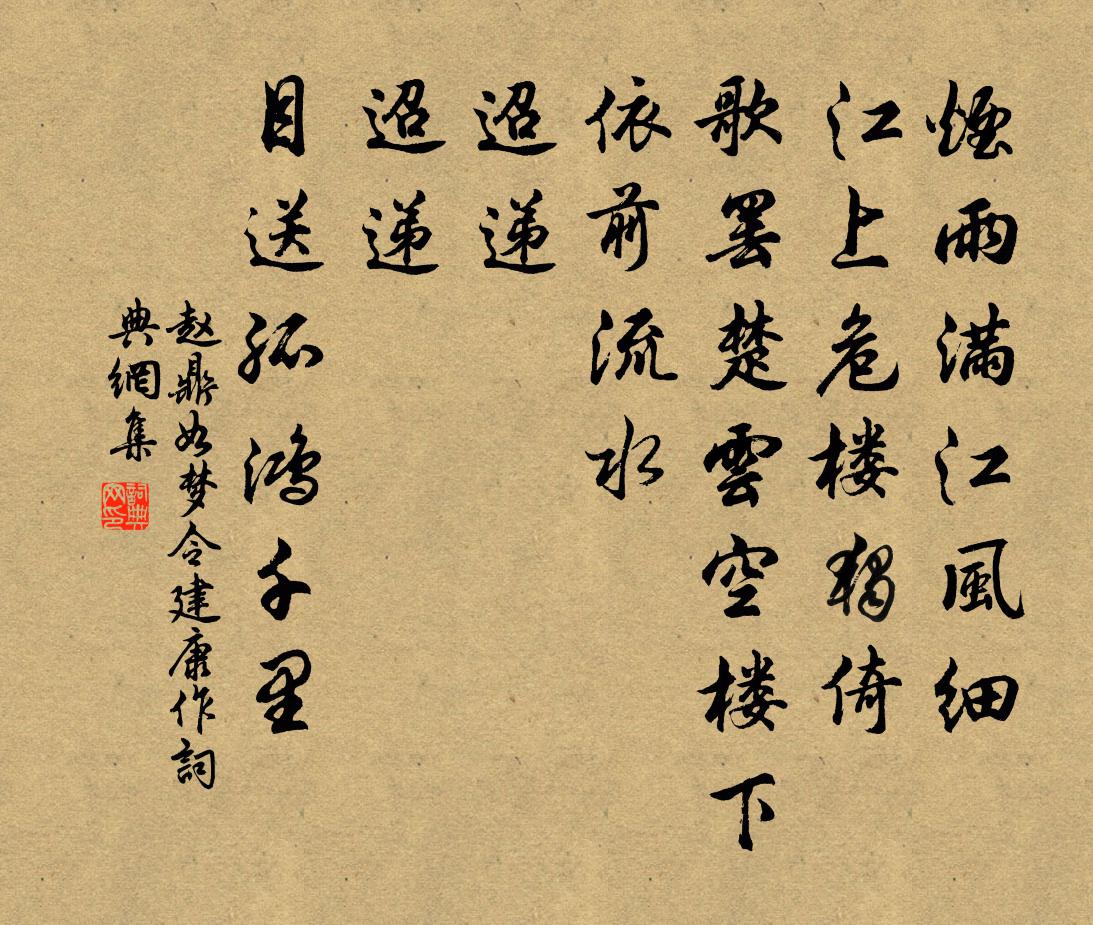 煙雨满江風细
江上危楼獨倚
歌罢楚雲空楼下
依前流水
迢递
迢递
目送孤鸿千里
赵鼎如梦令建康作詞
典網集
詞典
网印